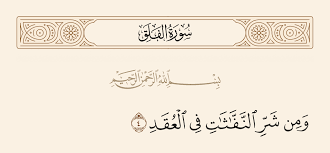 سُورَةُ الفَلَقِ
بِسْمِ اللَّهِ الرَّحْمَٰنِ الرَّحِيمِ
وَمِن شَرِّ ٱلنَّفَّٰثَٰتِ فِى ٱلْعُقَدِ ٤